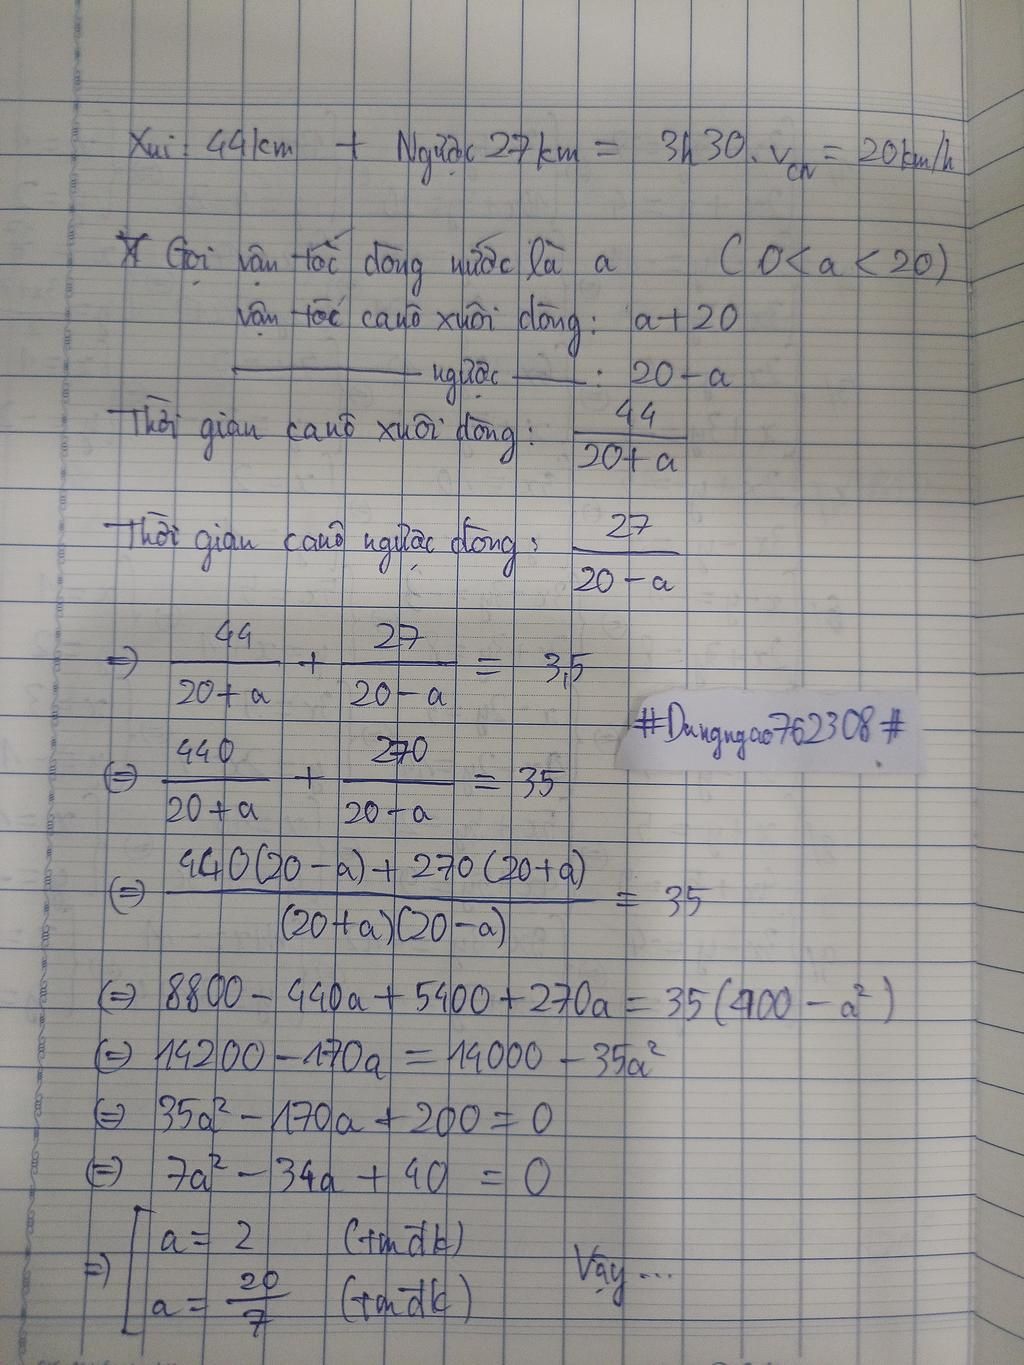 Xuôi: 44km + Ngược 27km = 3h30. Vcn = 20km/h
* Gọi vận tốc dòng nước là a (0<a<20)
vận tốc canô xuôi dòng: a+20
——— ngược ——: 20-a
Thời gian canô xuôi dòng: 44/(20+a)
Thời gian canô ngược dòng: 27/(20-a)
=> 44/(20+a) + 27/(20-a) = 3,5
#Dungngao762308#
(=) 440/(20+a) + 270/(20-a) = 35
(=) (440(20-a)+270(20+a))/((20+a)(20-a)) = 35
(=) 8800-440a+5400+270a=35(400-a²)
(=) 14200-170a=14000-35a²
(=) 35a²-170a+200=0
(=) 7a²-34a+40=0
=> [a=2 (tmđk)
a=20/7 (tmđk) Vậy...